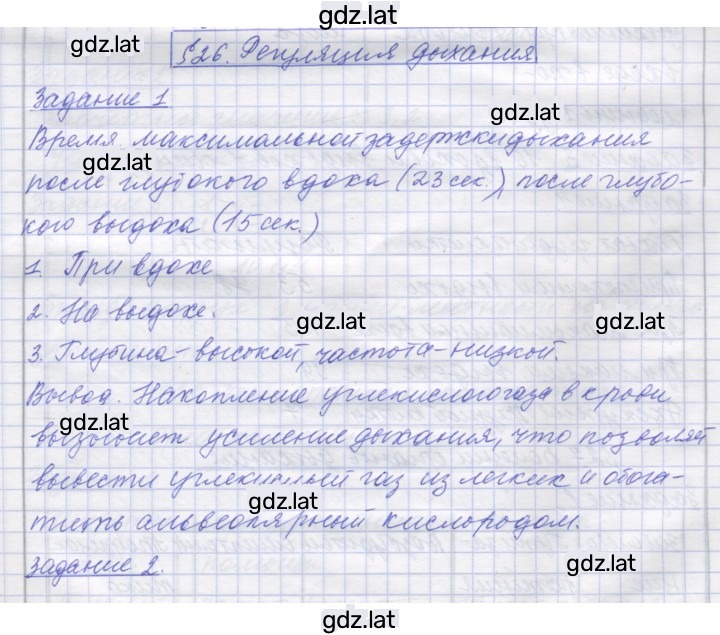 gdz.lat
gdz.lat
§26. Регуляция дыхания
Задание 1
gdz.lat
Время максимальной задержки дыхания
gdz.lat
после глубокого вдоха (23 сек.), после глубо-
кого выдоха (15 сек.)
1. При вдохе
2. На выдохе.
gdz.lat
gdz.lat
3. Глубина - высокой, частота - низкой.
Вывод. Накопление углекислого газа в крови
gdz.lat
вызывает усиление дыхания, что позволяет
вывести углекислый газ из легких и обога-
gdz.lat
тить альвеолярный кислородом.
Задание 2.
gdz.lat
gdz.lat